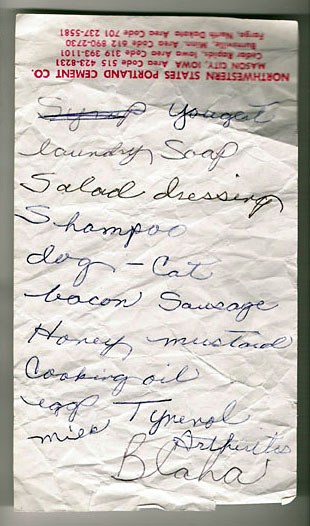 NORTHWESTERN STATES PORTLAND CEMENT CO.
MASON CITY, IOWA Area Code 515 423-3231
Cedar Rapids, Iowa Area Code 319 393-1101
Burnsville, Minn. Area Code 612 890-2730
Fargo, North Dakota Area Code 701 237-5581
Syrup Yougert
laundry Soap
Salad dressing
Shampoo
dog - Cat
bacon Sausage
Honey mustard
Cooking oil
egg Tynenol
milk
Blaha